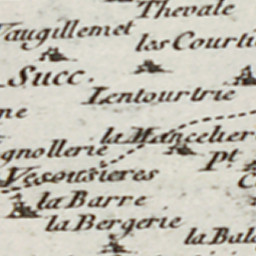 Thevale
Vaugillemet
les Courti
Succ.
Lentourtrie
ne
la Mancelier
gnollerie
Pt
Vesousieres
C
la Barre
la Bergerie
la Bala